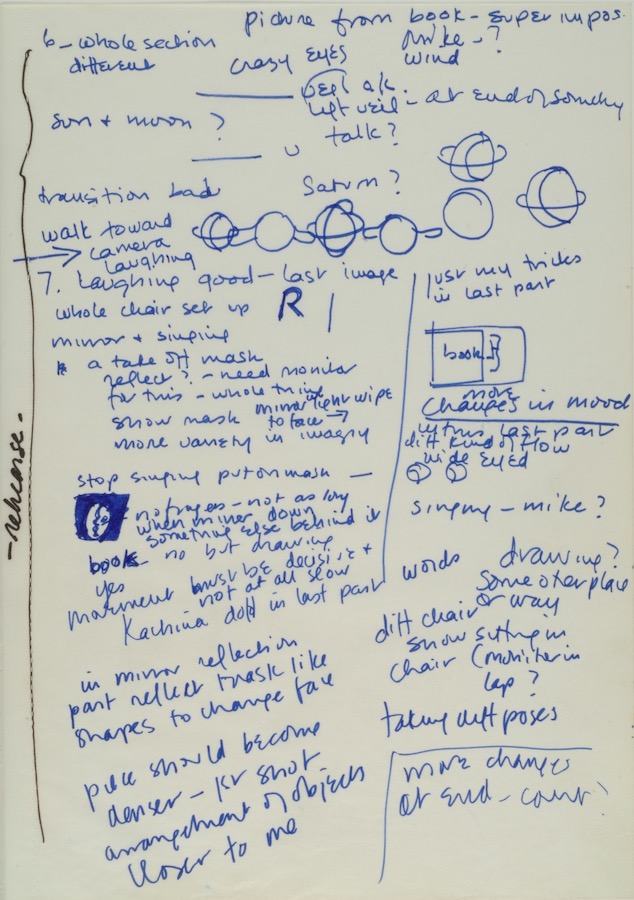 picture from book - super impos.
6 - whole section
different
crazy eyes
Mike - ?
wind
left veil - at end of
talk?
sun + moon ?
transition bad
Saturn ?
walk toward
camera
laughing
7. Laughing good - last image
whole chair set up
R
mirror + singing
a take off mask
reflect? - need monitor
for this - whole thing
show mask mirror light wipe
to face →
more variety in imagry
stop singing put on mask —
not as long
when mirror down
something else behind it
book no but drawing
yes
movement must be decisive +
not at all slow
Kachina doll in last part
in mirror reflection
part reflect mask like
shapes to change face
piece should become
denser - 1st shot
arrangement of objects
closer to me
just my tricks
in last part
book
more
changes in mood
in this last part
diff kind of flow
wide eyed
singing - mike ?
words
drawing?
some other place
or way
diff chair
show sitting in
chair (moniter in
lap ?
taking diff poses
more changes
at end - count?
- rehearse -